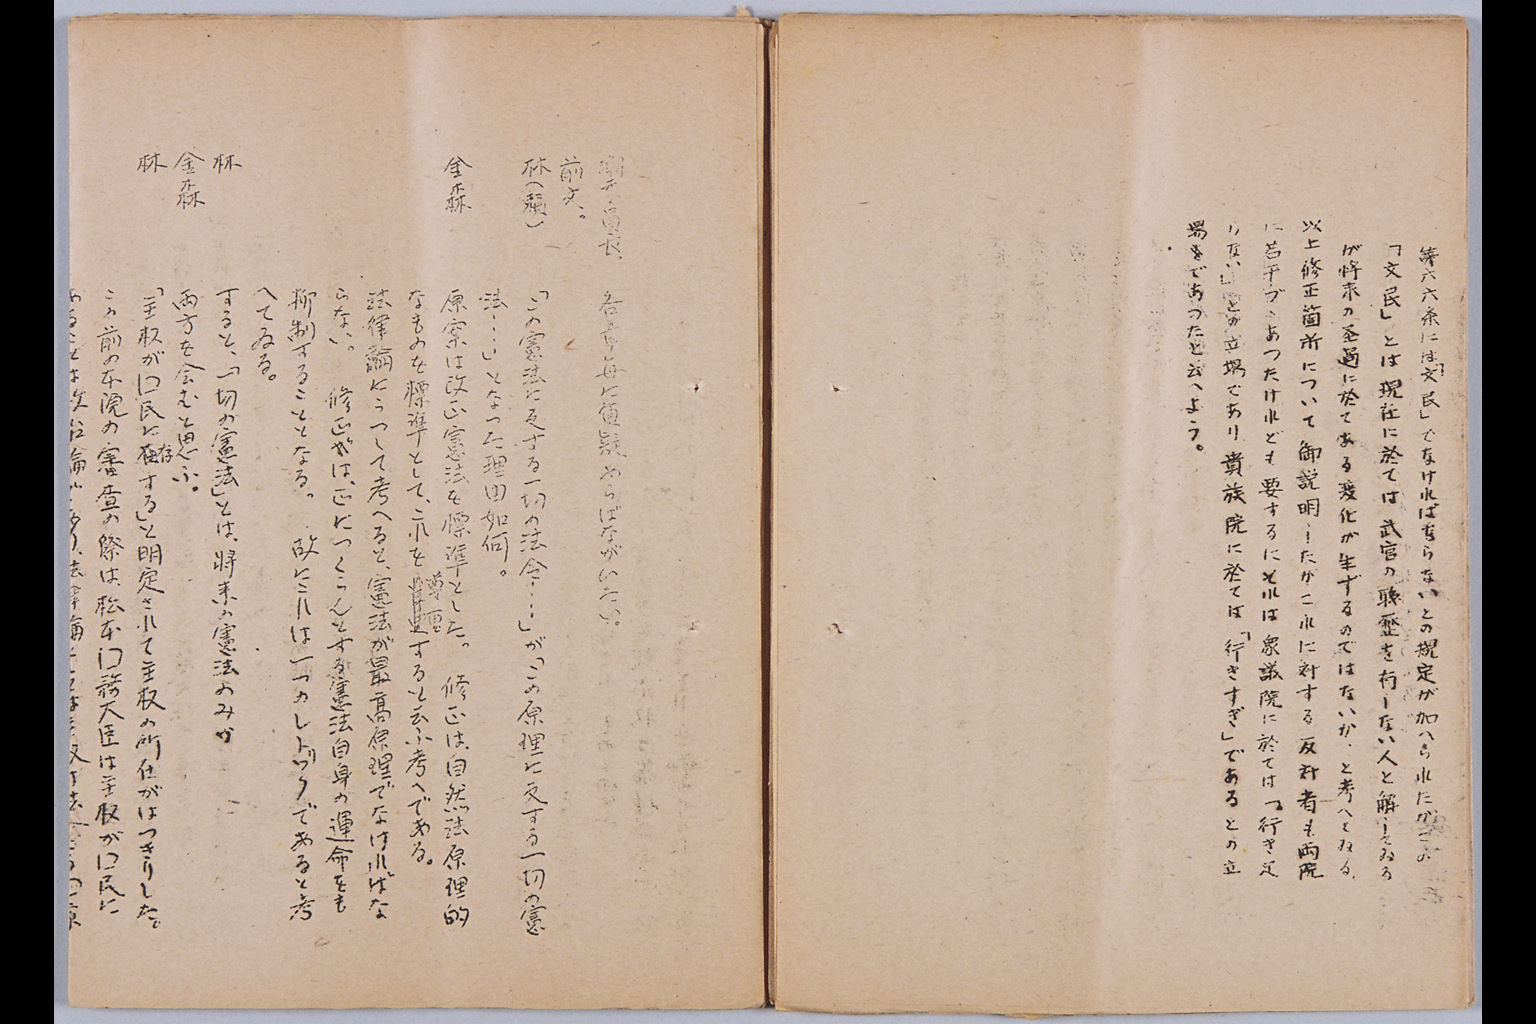 第六六条には「文民」でなければならないとの規定が加へられたがこの
「文民」とは現在に於ては武官の職歴を有しない人と解してゐる
が将来の経過に於てある変化が生ずるのではないか、と考へてゐる。
以上修正箇所について御説明したがこれに対する反対者も両院
に若干づゝあつたけれども要するにそれは衆議院に於ては「行き足
りない」との立場であり貴族院に於ては「行きすぎ」であるとの立
場をであつたと云へよう。
委員長 各章毎に質疑やらばながいたい。
前文。
林(頼) 「この憲法に反する一切の法令……」が「この原理に反する一切の憲
法……」となつた理由如何。
金森 原案は改正憲法を標準とした。修正は、自然法原理的
なものを標準として、これを尊重すると云ふ考へである。
法律論にうつして考へると、憲法が最高原理でなければな
らない。修正では、正につくらんとする憲法自身の運命をも
抑制することとなる。故にこれは一つのレトリックであると考
へてゐる。
林 すると、「一切の憲法」とは、将来の憲法のみか
金森 両方を含むと思ふ。
林 「主权が国民に存する」と明定されて主权の所在がはつきりした。
この前の本院の審査の際は松本国務大臣は主权が国民に
あることは政治論